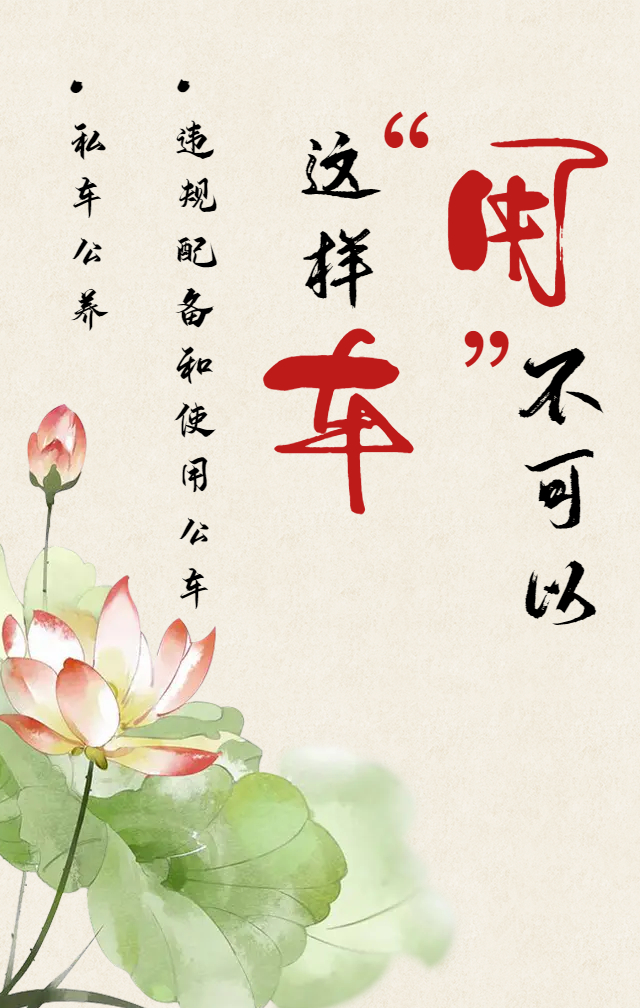 这样“用”车
不可以
• 违规配备和使用公车
• 私车公养